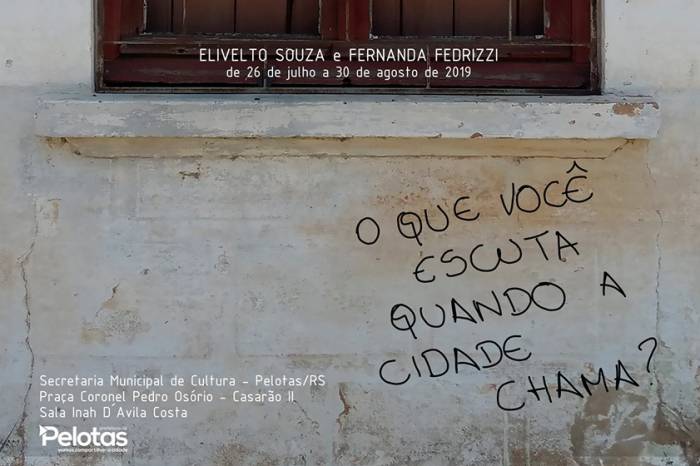 ELIVELTO SOUZA e FERNANDA FEDRIZZI
de 26 de julho a 30 de agosto de 2019
O QUE VOCÊ
ESCUTA
QUANDO A
CIDADE
CHAMA?
Secretaria Municipal de Cultura - Pelotas/RS
Praça Coronel Pedro Osório - Casarão II
Sala Inah D'Avila Costa
Pelotas
vamos compartilhar a cidade